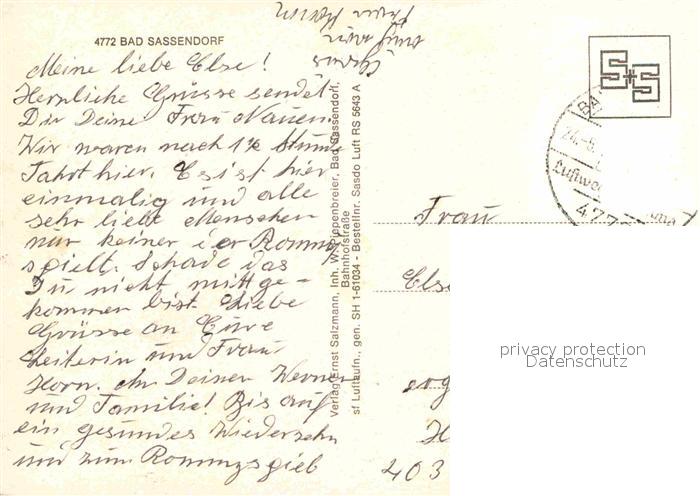 4772 BAD SASSENDORF
Meine liebe Else!
Herzliche Grüsse sendet
Dir Deine Frau Nauen
Wir waren nach 1½ Stunde
Fahrt hier. Es ist hier
einmalig und alle
sehr liebe Menschen
nur keiner der Rommy
spielt. Schade das
Du nicht mitge-
kommen bist. Liebe
Grüsse an Eure
Leiterin und Frau
Horn. An Deinen Werner
und Familie! Bis auf
ein gesundes Wiedersehn
und zum Rommyspiel
Verlag Ernst Salzmann, Inh. W. Piepenbreier, Bad Sassendorf,
Bahnhofstraße
sf Luftaufn., gen. SH 1-61034 - Bestellnr. Sasdo Luft RS 5643 A
S+S
BA
24.-6.
477
Frau
Else
privacy protection
Datenschutz
403